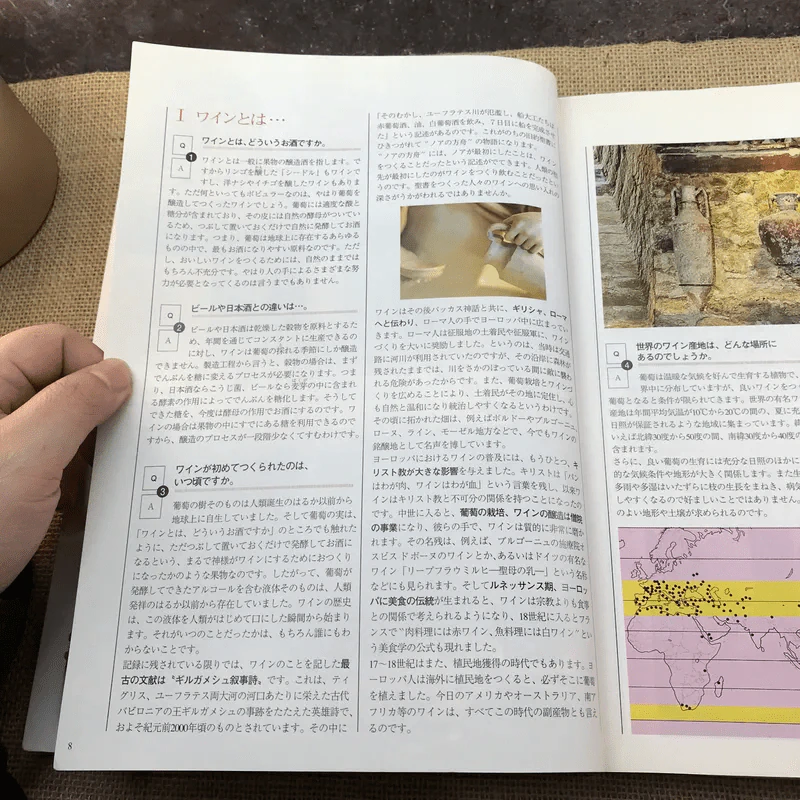 I ワインとは…
Q
A
1
ワインとは、どういうお酒ですか。
ワインとは一般に果物の醸造酒を指します。で
すからリンゴを醸した「シードル」もワイン
ですし、洋ナシやイチゴを醸したワインもありま
す。ただ何といってもポピュラーなのは、やはり葡萄を
醸造してつくったワインでしょう。葡萄には適度な酸と
糖分が含まれており、その皮には自然の酵母がついてい
るため、つぶして置いておくだけで自然に発酵してお酒
になります。つまり、葡萄は地球上に存在するあらゆる
ものの中で、最もお酒になりやすい原料なのです。ただ
し、おいしいワインをつくるためには、自然のままでは
もちろん不充分です。やはり人の手によるさまざまな努
力が必要となってくるのは言うまでもありません。
Q
A
2
ビールや日本酒との違いは…。
ビールや日本酒は乾燥した穀物を原料とするた
め、年間を通じてコンスタントに生産できるの
に対し、ワインは葡萄の採れる季節にしか醸造
できません。製造工程から言うと、穀物の場合は、まず
でんぷんを糖に変えるプロセスが必要になります。つま
り、日本酒ならこうじ菌、ビールなら麦芽の中に含まれ
る酵素の作用によってでんぷんを糖化します。そうして
できた糖を、今度は酵母の作用でお酒にするのです。ワ
インの場合は果物の中にすでにある糖を利用できるので
すから、醸造のプロセスが一段階少なくてすむわけです。
Q
A
3
ワインが初めてつくられたのは、
いつ頃ですか。
葡萄の樹そのものは人類誕生のはるか以前から
地球上に自生していました。そして葡萄の実は、
「ワインとは、どういうお酒ですか」のところでも触れた
ように、ただつぶして置いておくだけで発酵してお酒に
なるという、まるで神様がワインにするためにおつくり
になったかのような果物なのです。したがって、葡萄が
発酵してできたアルコールを含む液体そのものは、人類
発祥のはるか以前から存在していました。ワインの歴史
は、この液体を人類がはじめて口にした瞬間から始まり
ます。それがいつのことだったかは、もちろん誰にもわ
からないことです。
記録に残されている限りでは、ワインのことを記した最
古の文献は“ギルガメシュ叙事詩”です。これは、ティ
グリス、ユーフラテス両大河の河口あたりに栄えた古代
バビロニアの王ギルガメシュの事跡をたたえた英雄詩で、
およそ紀元前2000年頃のものとされています。その中に
8
「そのむかし、ユーフラテス川が氾濫し、船大工たちは
赤葡萄酒、油、白葡萄酒を飲み、7日目に船を完成させ
た」という記述があるのです。これがのちの旧約聖書に
ひきつがれて“ノアの方舟”の物語になります。
“ノアの方舟”には、ノアが最初にしたことは、ワイン
をつくることだったという記述がでてきます。人類の祖
先が最初にしたのがワインをつくり飲むことだったとい
うのです。聖書をつくった人々のワインへの思い入れの
深さがうかがわれるではありませんか。
ワインはその後バッカス神話と共に、ギリシャ、ローマ
へと伝わり、ローマ人の手でヨーロッパ中に広まってい
きます。ローマ人は征服地の土着民や征服軍に、ワイン
づくりを大いに奨励しました。というのは、当時は交通
路に河川が利用されていたのですが、その沿岸に森林が
残されたままでは、川をさかのぼっている間に敵に襲わ
れる危険があったからです。また、葡萄栽培とワインづ
くりを広めることにより、土着民がその地に定住し、心
も自然と温和になり統治しやすくなるというわけです。
その頃に拓かれた畑は、例えばボルドーやブルゴーニュ、
ローヌ、ライン、モーゼル地方などで、今でもワインの
銘醸地として名声を博しています。
ヨーロッパにおけるワインの普及には、もうひとつ、キ
リスト教が大きな影響を与えました。キリストは「パン
はわが肉、ワインはわが血」という言葉を残し、以来ワ
インはキリスト教と不可分の関係を持つことになったの
です。中世に入ると、葡萄の栽培、ワインの醸造は僧院
の事業になり、彼らの手で、ワインは質的に非常に磨か
れます。その名残は、例えば、ブルゴーニュの施療院オ
スピス ド ボーヌのワインとか、あるいはドイツの有名な
ワイン「リープフラウミルヒ―聖母の乳―」という名称
などにも見られます。そしてルネッサンス期、ヨーロッ
パに美食の伝統が生まれると、ワインは宗教よりも食事
との関係で考えられるようになり、18世紀に入るとフラ
ンスで“肉料理には赤ワイン、魚料理には白ワイン”とい
う美食学の公式も現れました。
17〜18世紀はまた、植民地獲得の時代でもあります。ヨ
ーロッパ人は海外に植民地をつくると、必ずそこに葡萄
を植えました。今日のアメリカやオーストラリア、南ア
フリカ等のワインは、すべてこの時代の副産物とも言え
るのです。
Q
A
4
世界のワイン産地は、どんな場所に
あるのでしょうか。
葡萄は温暖な気候を好んで生育する植物で、
界中に分布していますが、良いワインをつ
葡萄となると条件が限られてきます。世界の有名ワ
産地は年間平均気温が10℃から20℃の間の、夏に充
日照が保証されるような地域に集まっています。緯
いえば北緯30度から50度の間、南緯30度から40度の
含まれます。
さらに、良い葡萄の生育には充分な日照のほかに
的な気候条件や地形が大きく関係します。また生
多雨や多湿はいたずらに枝の生長をまねき、病気
しやすくなるので好ましいことではありません。
のよい地形や土壌が求められるのです。